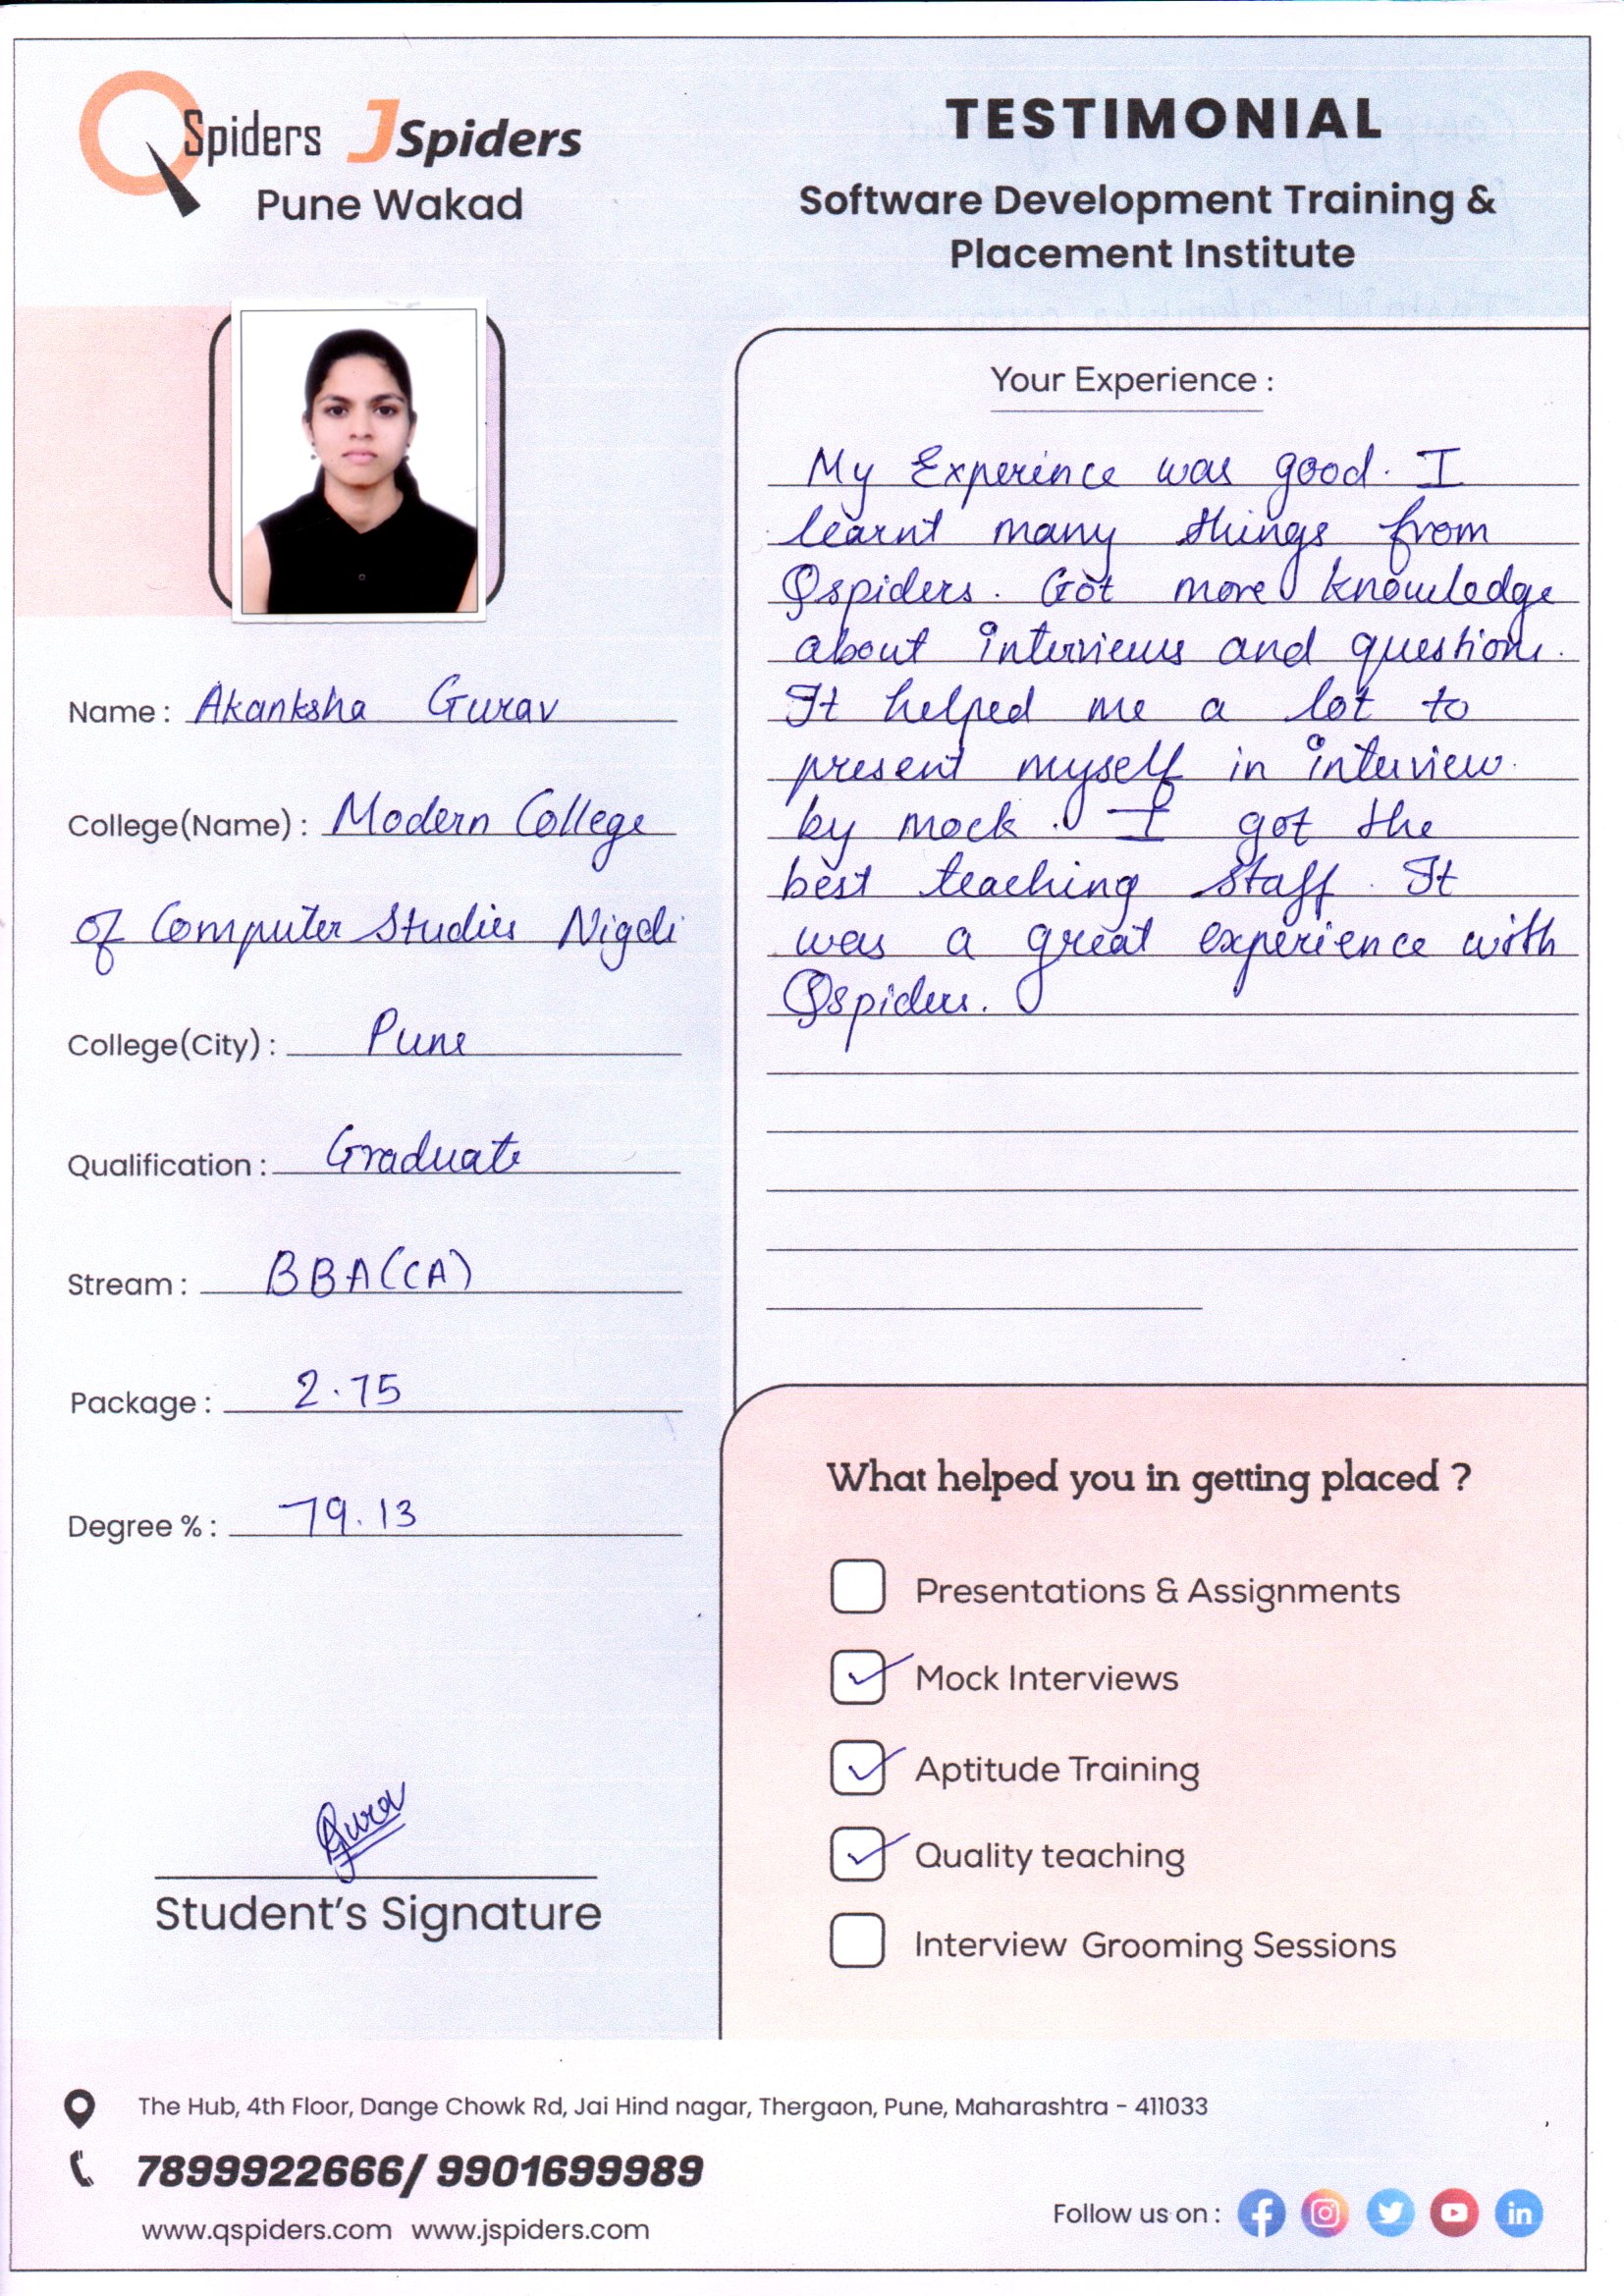 QSpiders JSpiders
Pune Wakad
TESTIMONIAL
Software Development Training &
Placement Institute
Name : Akanksha Gurav
College(Name) : Modern College
of Computer Studies Nigdi
College(City) : Pune
Qualification : Graduate
Stream : BBA(CA)
Package : 2.75
Degree % : 79.13
Gurav
Student's Signature
Your Experience :
My Experince was good. I
learnt many things from
Qspiders. Got more knowledge
about interviews and questions.
It helped me a lot to
present myself in interview.
by mock. I got the
best teaching staff. It
was a great experience with
Qspiders.
What helped you in getting placed ?
Presentations & Assignments
Mock Interviews
Aptitude Training
Quality teaching
Interview Grooming Sessions
The Hub, 4th Floor, Dange Chowk Rd, Jai Hind nagar, Thergaon, Pune, Maharashtra - 411033
7899922666/ 9901699989
www.qspiders.com www.jspiders.com
Follow us on :